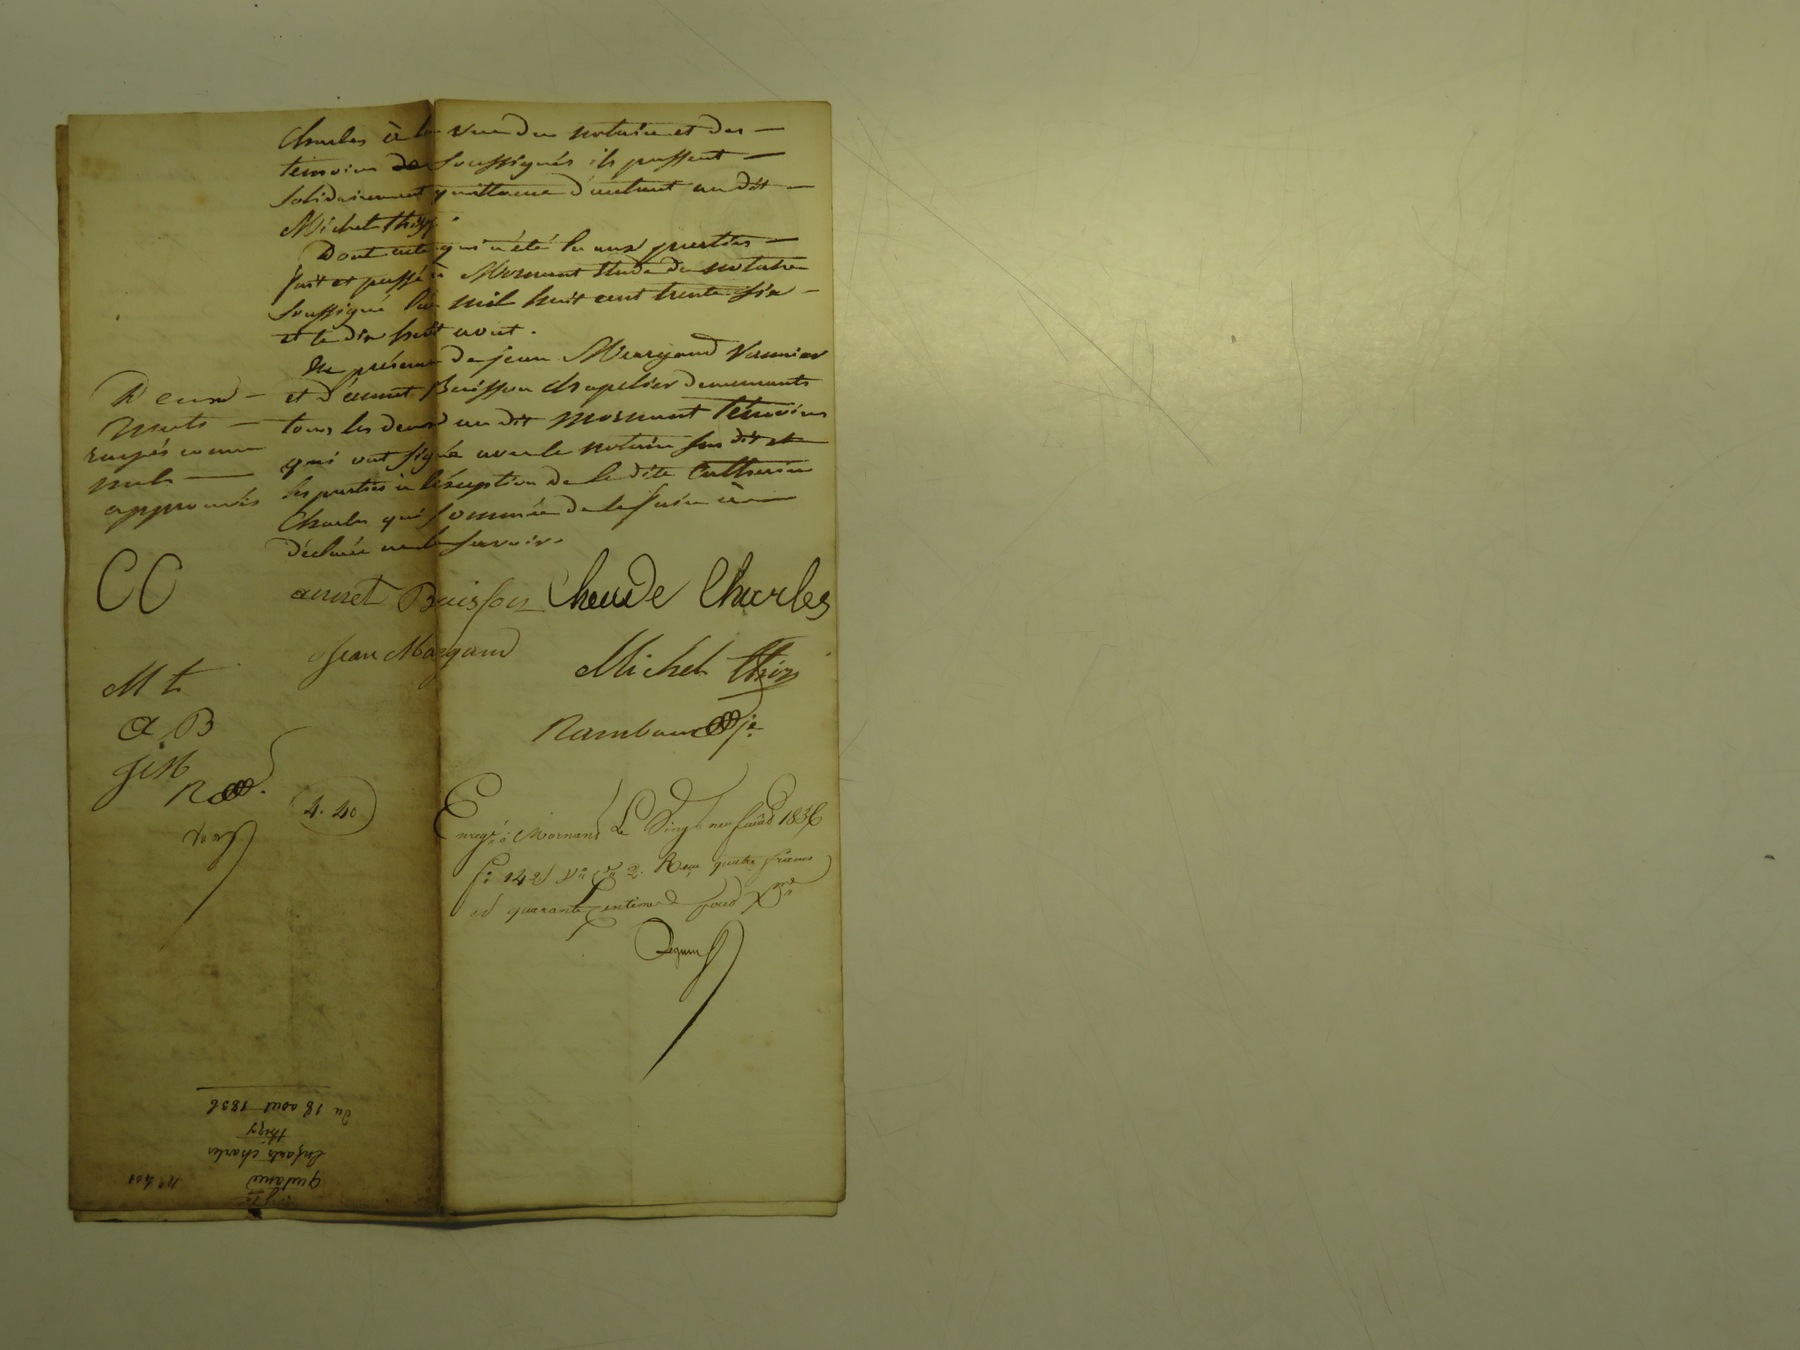 Charles à la vue du notaire et des
témoins de soussignés ils passent
solidairement quittance d'autant au dit
Michel thizy.
Dont acte qui a été lu aux parties
fait et passé à Mornant étude du notaire
soussigné l'an mil huit cent trente six
et le dix huit aout.
En présence de jean Margand
et d'ennet Buisson chapelier demeurants
tous les deux au dit mornant témoins
qui ont signé avec le notaire sus dit et
les parties à l'éxception de la dite Catherine
Charles qui sommée de le faire a
déclaré ne le savoir.
Deux
mots
rayés comme
nuls
approuvés
CC
M t
a B
j M
R
ennet Buisson Claude Charles
jean Margand
Michel thizy
Rambaud je
4. 40
Enregé à Mornant Le Vingt neuf août 1836
fo 142 Vo Ce 2. Reçu quatre francs
et quarante Centimes
quittance
Enfants charles
thizy
Du 18 aout 1836